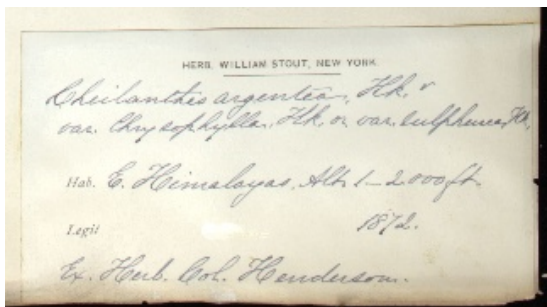 HERB. WILLIAM STOUT, NEW YORK.
Cheilanthes argentea, Hk.
var. Chrysophylla, Hk. or var. sulphurea, Hk,
Hab. E. Himalayas, Alt. 1–2000 ft.
Legit 1872.
Ex. Herb. Col. Henderson.